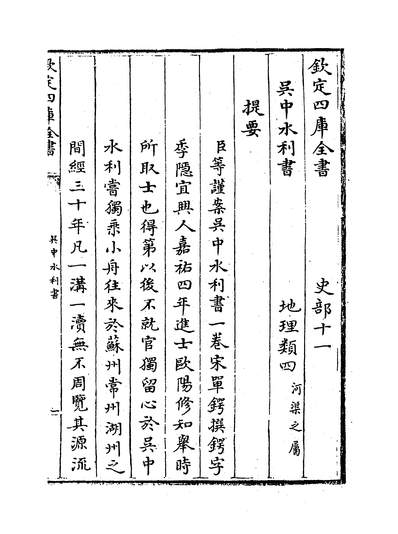 欽定四庫全書　史部十一
吳中水利書　地理類四河渠之屬
提要
臣等謹案吳中水利書一卷宋單鍔撰鍔字
季隱宜興人嘉祐四年進士歐陽修知舉時
所取士也得第以後不就官獨留心於吳中
水利嘗獨乘小舟往來於蘇州常州湖州之
間經三十年凡一溝一瀆無不周覽其源流
欽定四庫全書
吳中水利書